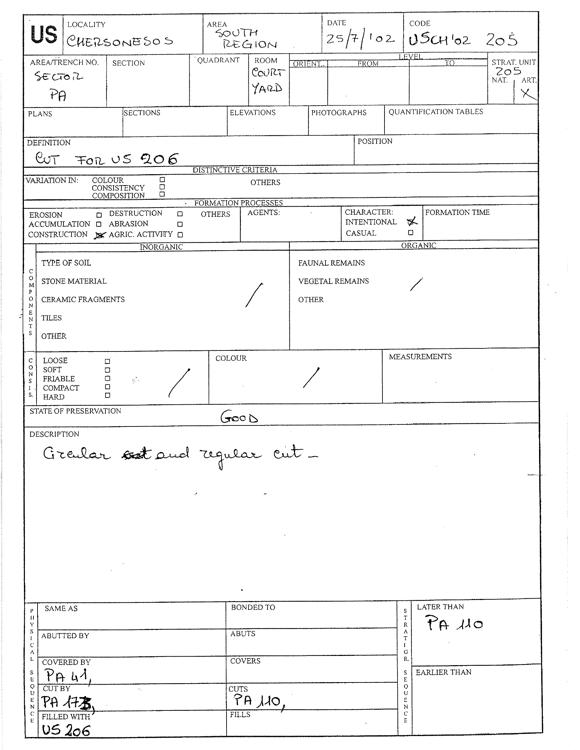 US
LOCALITY
CHERSONESOS
AREA
SOUTH
REGION
DATE
25/7/'02
CODE
USCH'02 205
AREA/TRENCH NO.
SECTOR
PA
SECTION
QUADRANT
ROOM
COURT
YARD
LEVEL
ORIENT.
FROM
TO
STRAT. UNIT
205
NAT.
ART.
X
PLANS
SECTIONS
ELEVATIONS
PHOTOGRAPHS
QUANTIFICATION TABLES
DEFINITION
CUT FOR US 206
POSITION
DISTINCTIVE CRITERIA
VARIATION IN:
COLOUR
CONSISTENCY
COMPOSITION
OTHERS
FORMATION PROCESSES
EROSION
DESTRUCTION
OTHERS
ACCUMULATION
ABRASION
CONSTRUCTION
AGRIC. ACTIVITY
AGENTS:
CHARACTER:
INTENTIONAL
CASUAL
FORMATION TIME
COMPONENTS
INORGANIC
TYPE OF SOIL
STONE MATERIAL
CERAMIC FRAGMENTS
TILES
OTHER
ORGANIC
FAUNAL REMAINS
VEGETAL REMAINS
OTHER
CONSIS.
LOOSE
SOFT
FRIABLE
COMPACT
HARD
COLOUR
MEASUREMENTS
STATE OF PRESERVATION
GOOD
DESCRIPTION
Circular and regular cut -
PHYSICAL SEQUENCE
SAME AS
BONDED TO
ABUTTED BY
ABUTS
COVERED BY
PA 41,
COVERS
CUT BY
CUTS
PA 110,
FILLED WITH
US 206
FILLS
STRATIGR. SEQUENCE
LATER THAN
PA 110
EARLIER THAN